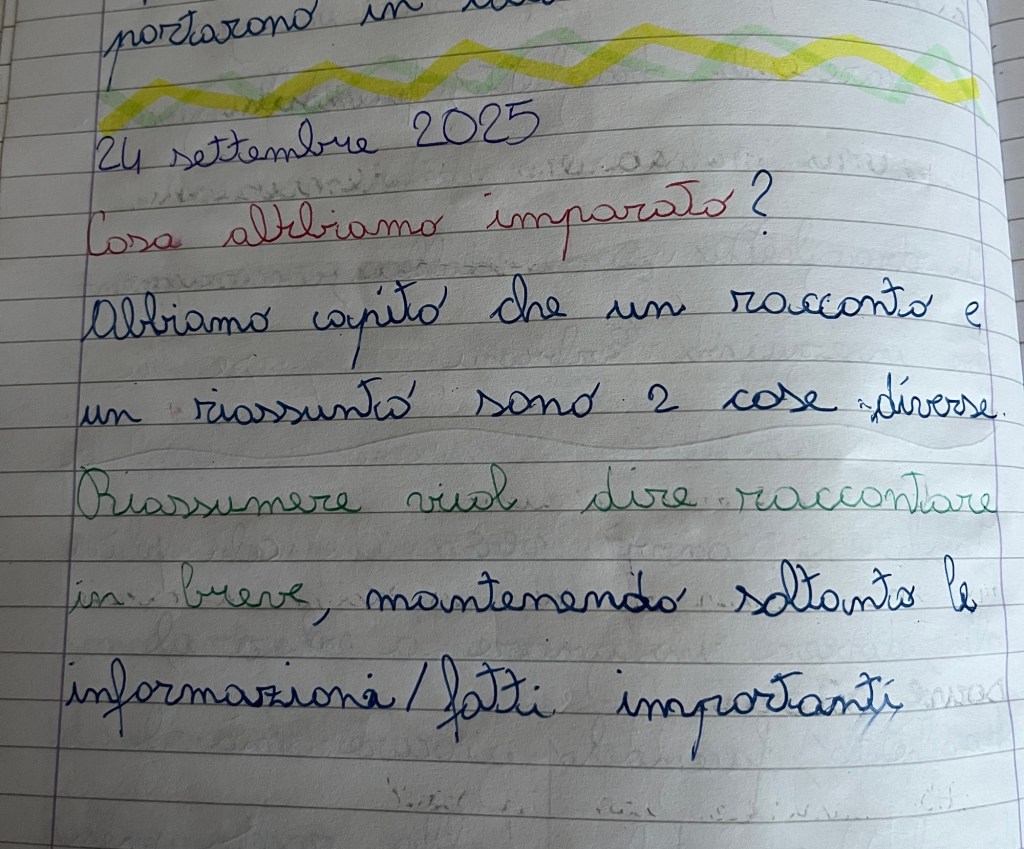 portarono in
24 settembre 2025
Cosa abbiamo imparato?
Abbiamo capito che un racconto e
un riassunto sono 2 cose diverse.
Riassumere vuol dire raccontare
in breve, mantenendo soltanto le
informazioni/fatti importanti